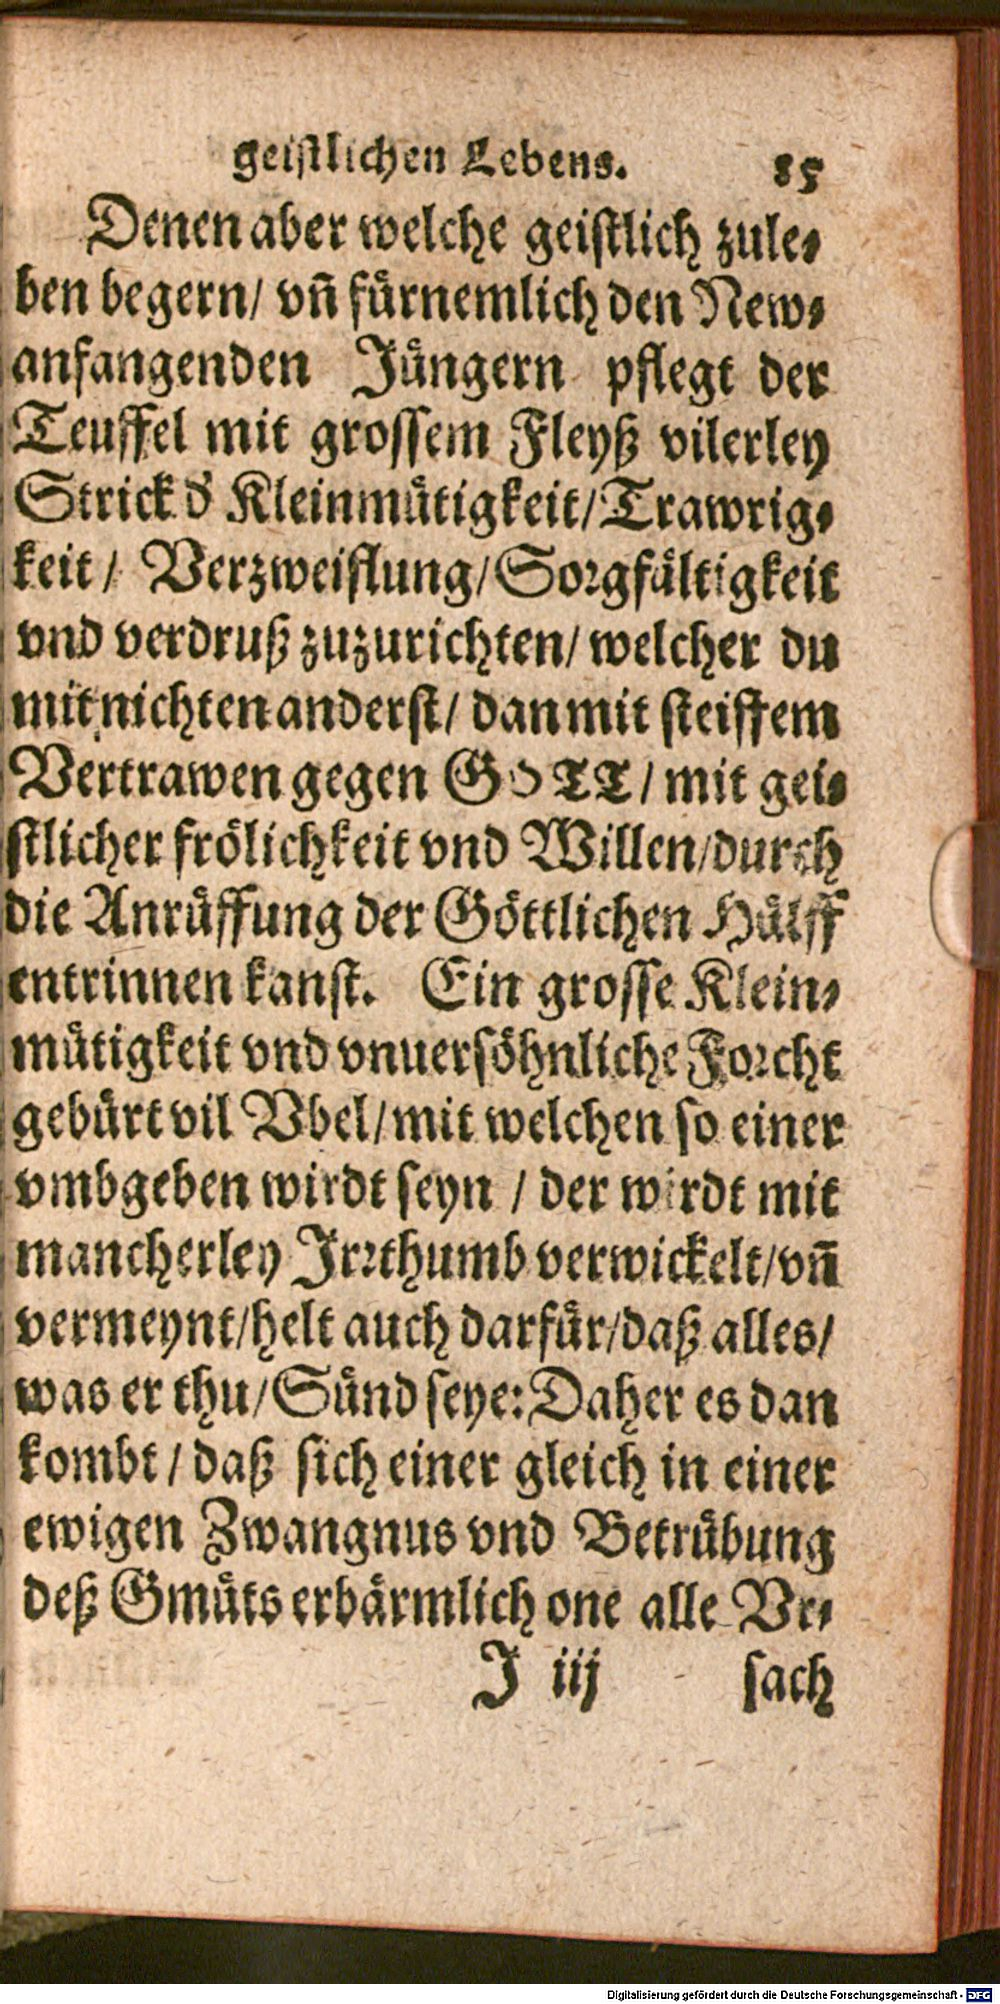 geistlichen Lebens. 85
Denen aber welche geistlich zule⸗
ben begern/ vñ fürnemlich den New⸗
anfangenden Jüngern pflegt der
Teuffel mit grossem Fleyß vilerley
Strick d' Kleinmütigkeit/ Trawrig⸗
keit/ Verzweiflung/ Sorgfältigkeit
vnd verdruß zuzurichten/ welcher du
mit nichten anderst/ dan mit steiffem
Vertrawen gegen GOTT/ mit gei⸗
stlicher frölichkeit vnd Willen/ durch
die Anrüffung der Göttlichen Hülff
entrinnen kanst. Ein grosse Klein⸗
mütigkeit vnd vnuersöhnliche Forcht
gebürt vil Vbel/ mit welchen so einer
vmbgeben wirdt seyn / der wirdt mit
mancherley Irrthumb verwickelt/ vñ
vermeynt/ helt auch darfür/ daß alles/
was er thu/ Sünd seye: Daher es dan
kombt / daß sich einer gleich in einer
ewigen Zwangnus vnd Betrübung
deß Gmüts erbärmlich one alle Vr⸗
J iij sach
Digitalisierung gefördert durch die Deutsche Forschungsgemeinschaft - DFG